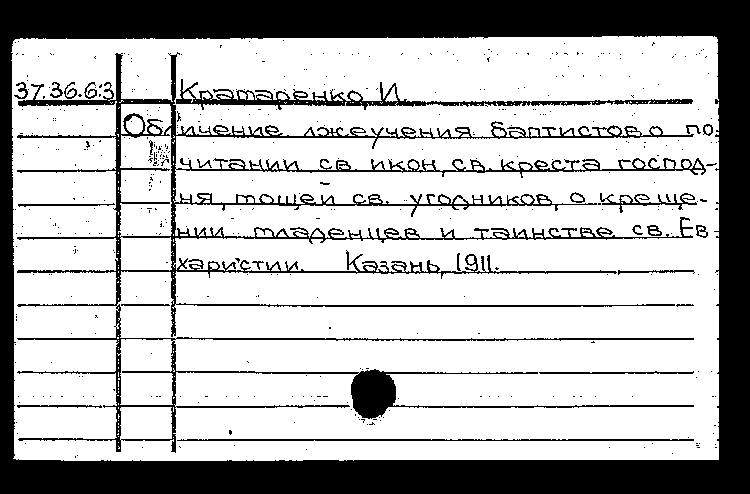 37.36.6:3 Кратаренко, И.
Обличение лжеучения баптистов о по-
читании св. икон, св. креста господ-
ня, мощей св. угодников, о креще-
нии младенцев и таинстве св. Ев-
харистии. Казань, 1911.